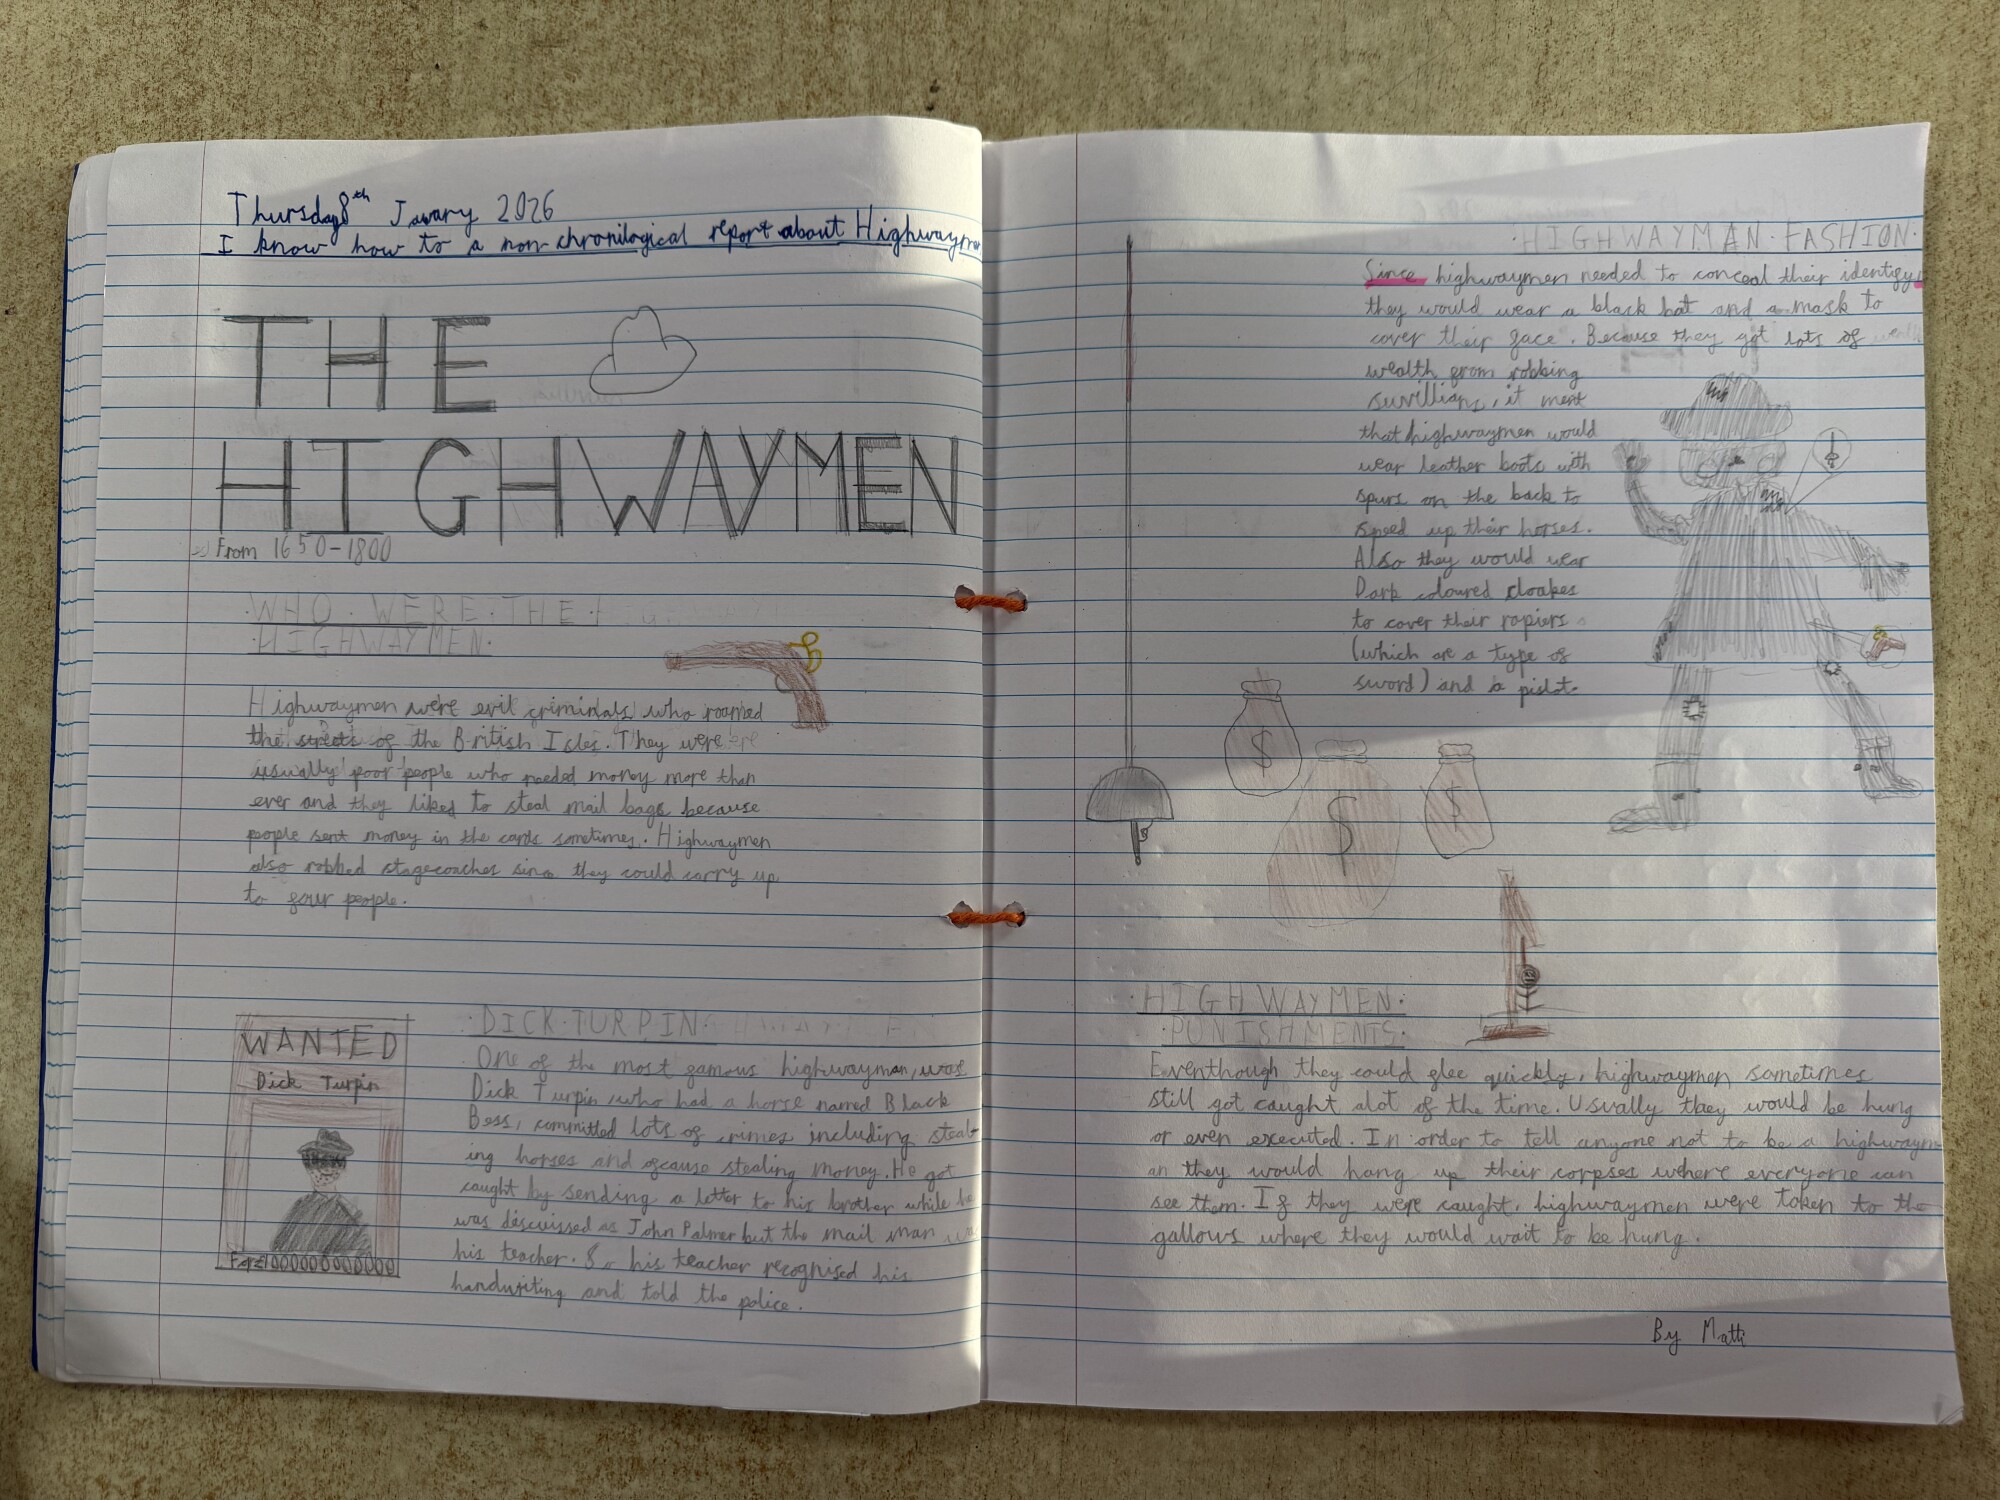 Thursday 8th Janurary 2026
I know how to a non-chronilogical report about Highwaymen
THE
HIGHWAYMEN
From 1650-1800
·WHO·WERE·THE·
·HIGHWAYMEN·
Highwaymen were evil criminals who roamed
the streets of the British Isles. They were
usually poor people who needed money more than
ever and they liked to steal mail bags because
people sent money in the cards sometimes. Highwaymen
also robbed stagecoaches since they could carry up
to four people.
WANTED
Dick Turpin
·DICK·TURPIN·
One of the most famous highwayman, was
Dick Turpin, who had a horse named Black
Bess, committed lots of crimes including steal-
ing horses and ofcause stealing money. He got
caught by sending a letter to his brother while he
was descuissed as John Palmer but the mail man was
his teacher. So his teacher recognised his
handwriting and told the police.
·HIGHWAYMAN·FASHION·
Since highwaymen needed to conceal their identify,
they would wear a black hat and a mask to
cover their face. Because they got lots of
wealth from robbing
suvillians, it ment
that highwaymen would
wear leather boots with
spurs on the back to
speed up their horses.
Also they would wear
Dark coloured cloakes
to cover their rapiers
(which are a type of
sword) and a pistol.
$
$
$
·HIGHWAYMEN·
·PUNISHMENTS·
Eventhough they could flee quickly, highwaymen sometimes
still got caught alot of the time. Usually they would be hung
or even executed. In order to tell anyone not to be a highwaym-
an they would hang up their corpses where everyone can
see them. If they were caught, highwaymen were taken to the
gallows where they would wait to be hung.
By Matti